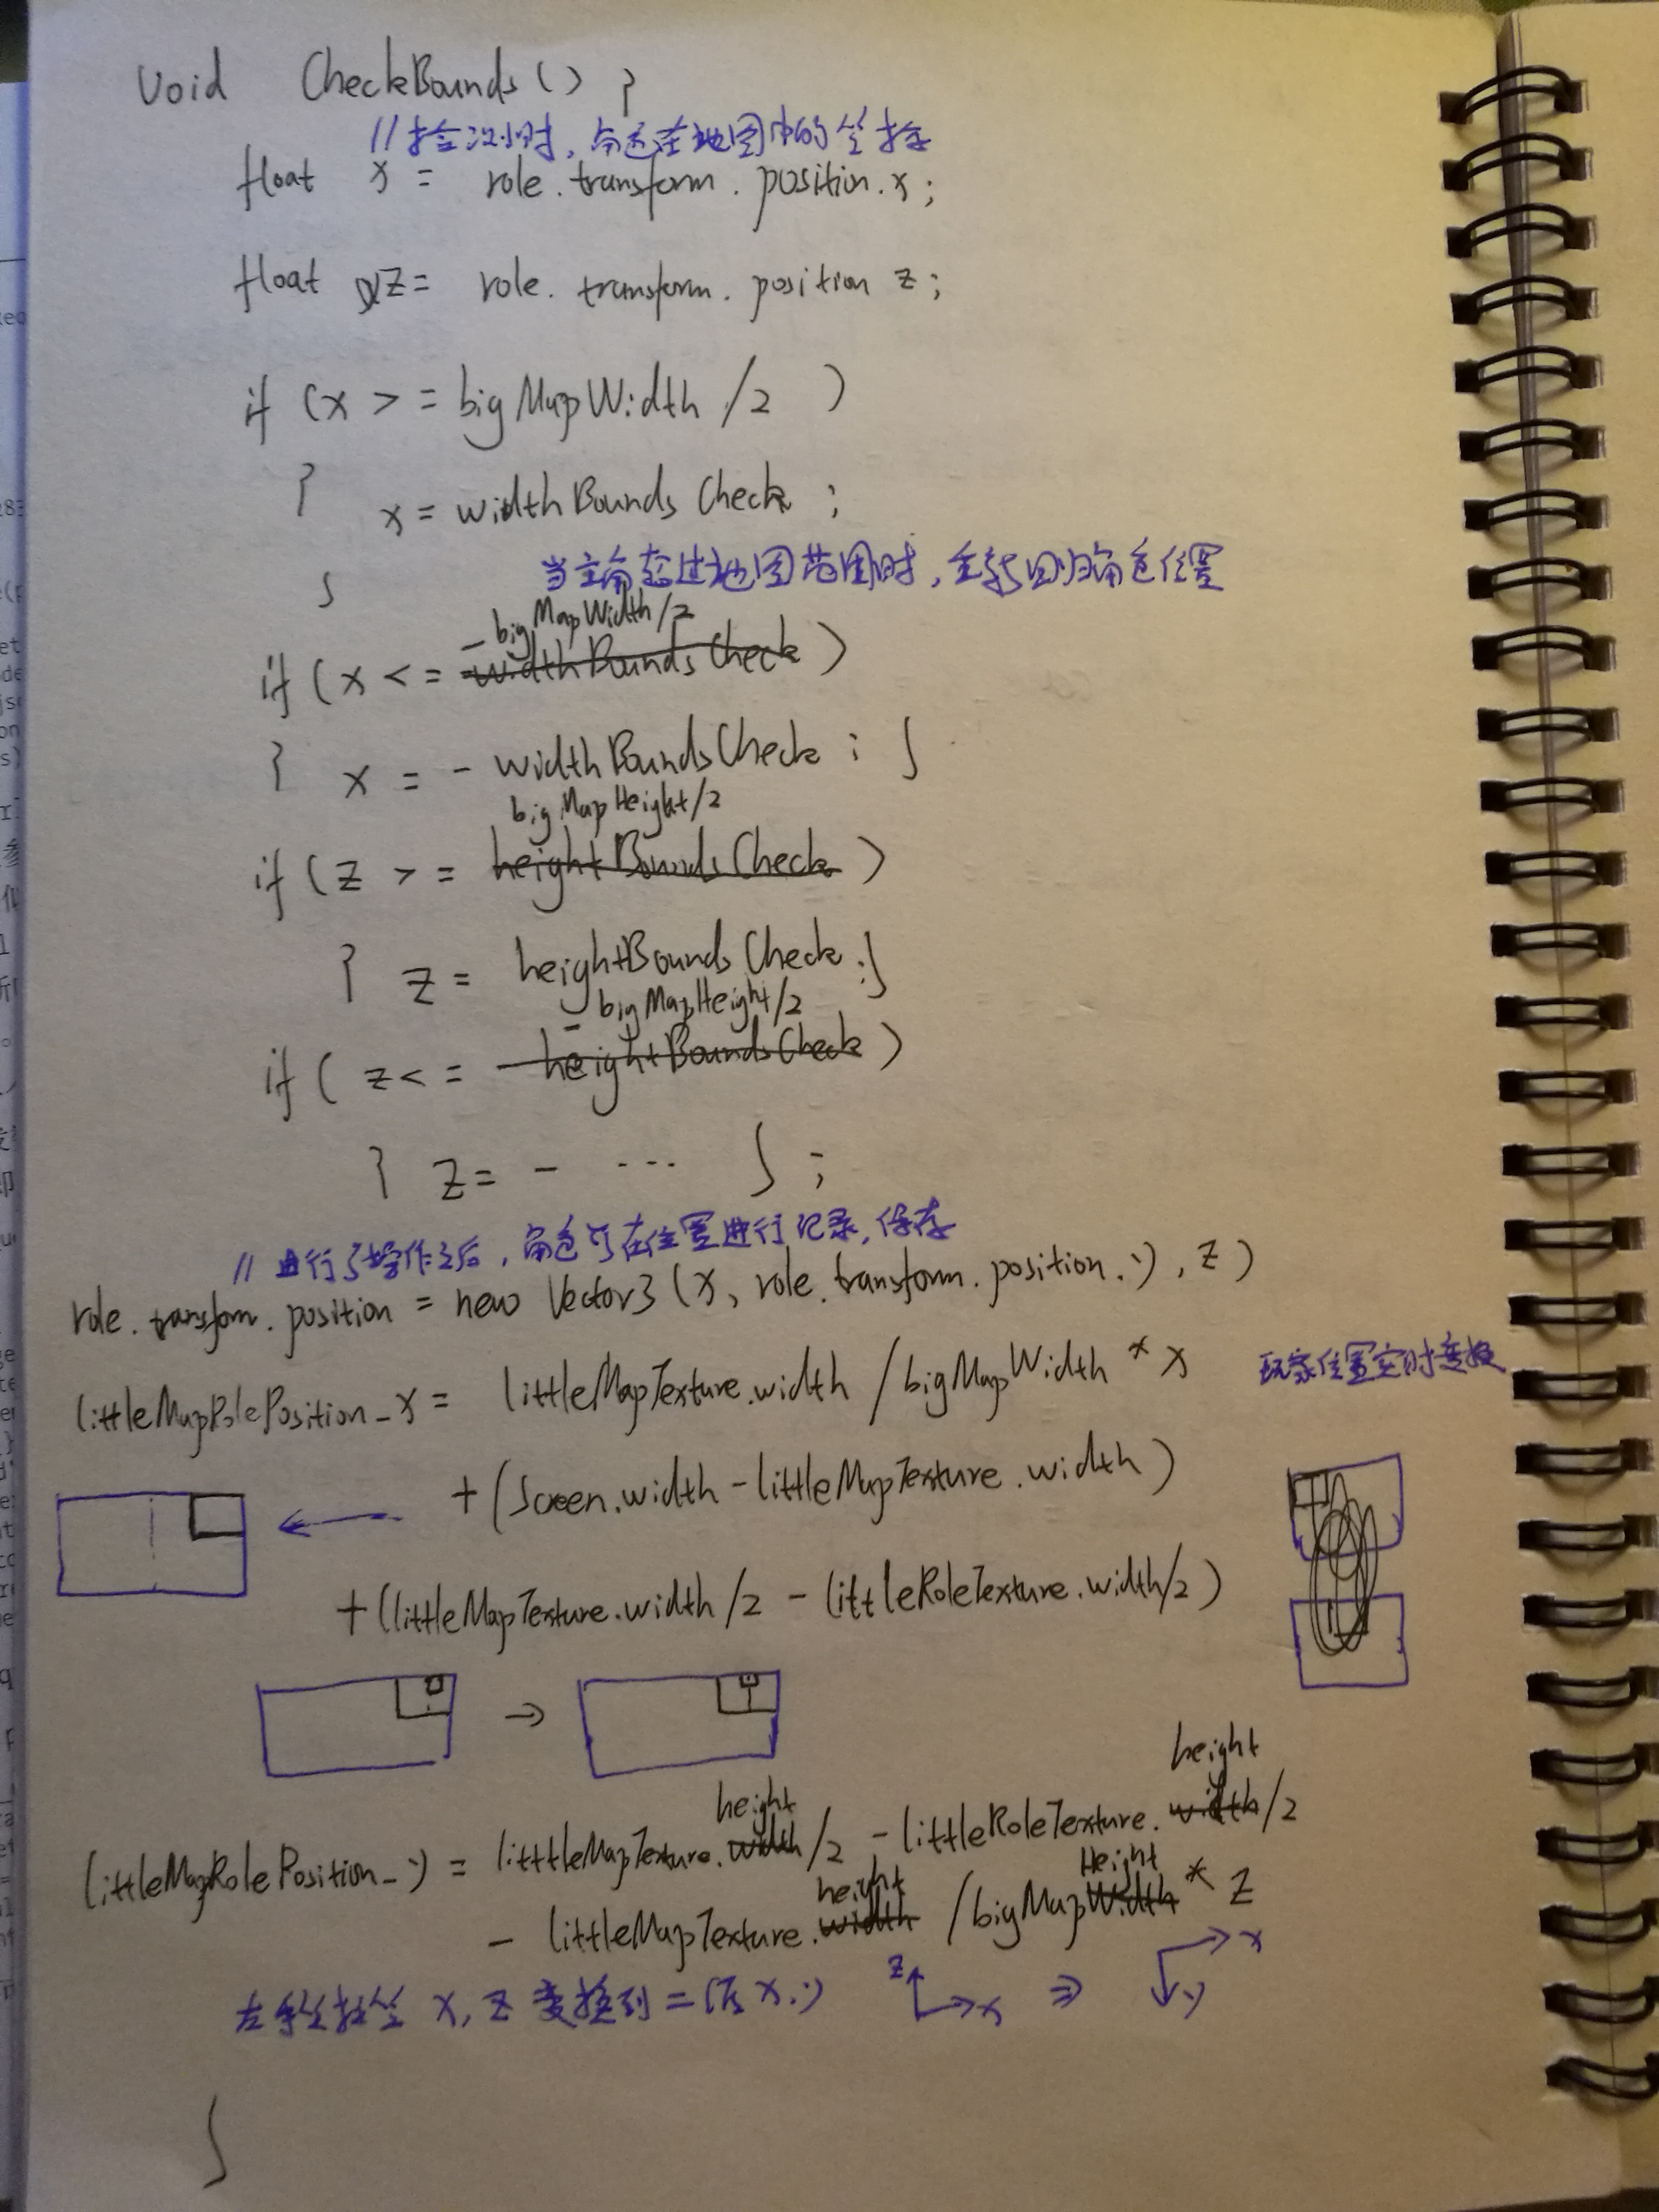 void CheckBounds() {
//检测时,角色在地图中的坐标
float x = role.transform.position.x;
float z = role.transform.position z;
if (x >= bigMapWidth /2 )
{ x = widthBoundsCheck ;
} 当主角超过地图范围时,重新回归角色位置
- bigMapWidth/2
if (x <= -widthBoundsCheck )
{ x = - widthBoundsCheck ; }
bigMapHeight/2
if (z >= heightBoundsCheck )
{ z = heightBoundsCheck ;}
- bigMapHeight/2
if ( z <= - heightBoundsCheck )
{ z = - ... } ;
// 进行了操作之后,角色所在位置进行记录,保存
role.transform.position = new Vector3 (x, role.transform.position.y, z)
littleMapRolePosition_x = littleMapTexture.width / bigMapWidth * x 玩家位置实时变换
+ (Screen.width - littleMapTexture.width)
+ (littleMapTexture.width/2 - littleRoleTexture.width/2)
height height
littleMapRolePosition_y = litttleMapTexture.width/2 - littleRoleTexture.width/2
height Height
- littleMapTexture.width /bigMapWidth * z
左手坐标 x, z 变换到 x.y z x ⇒ x y
}